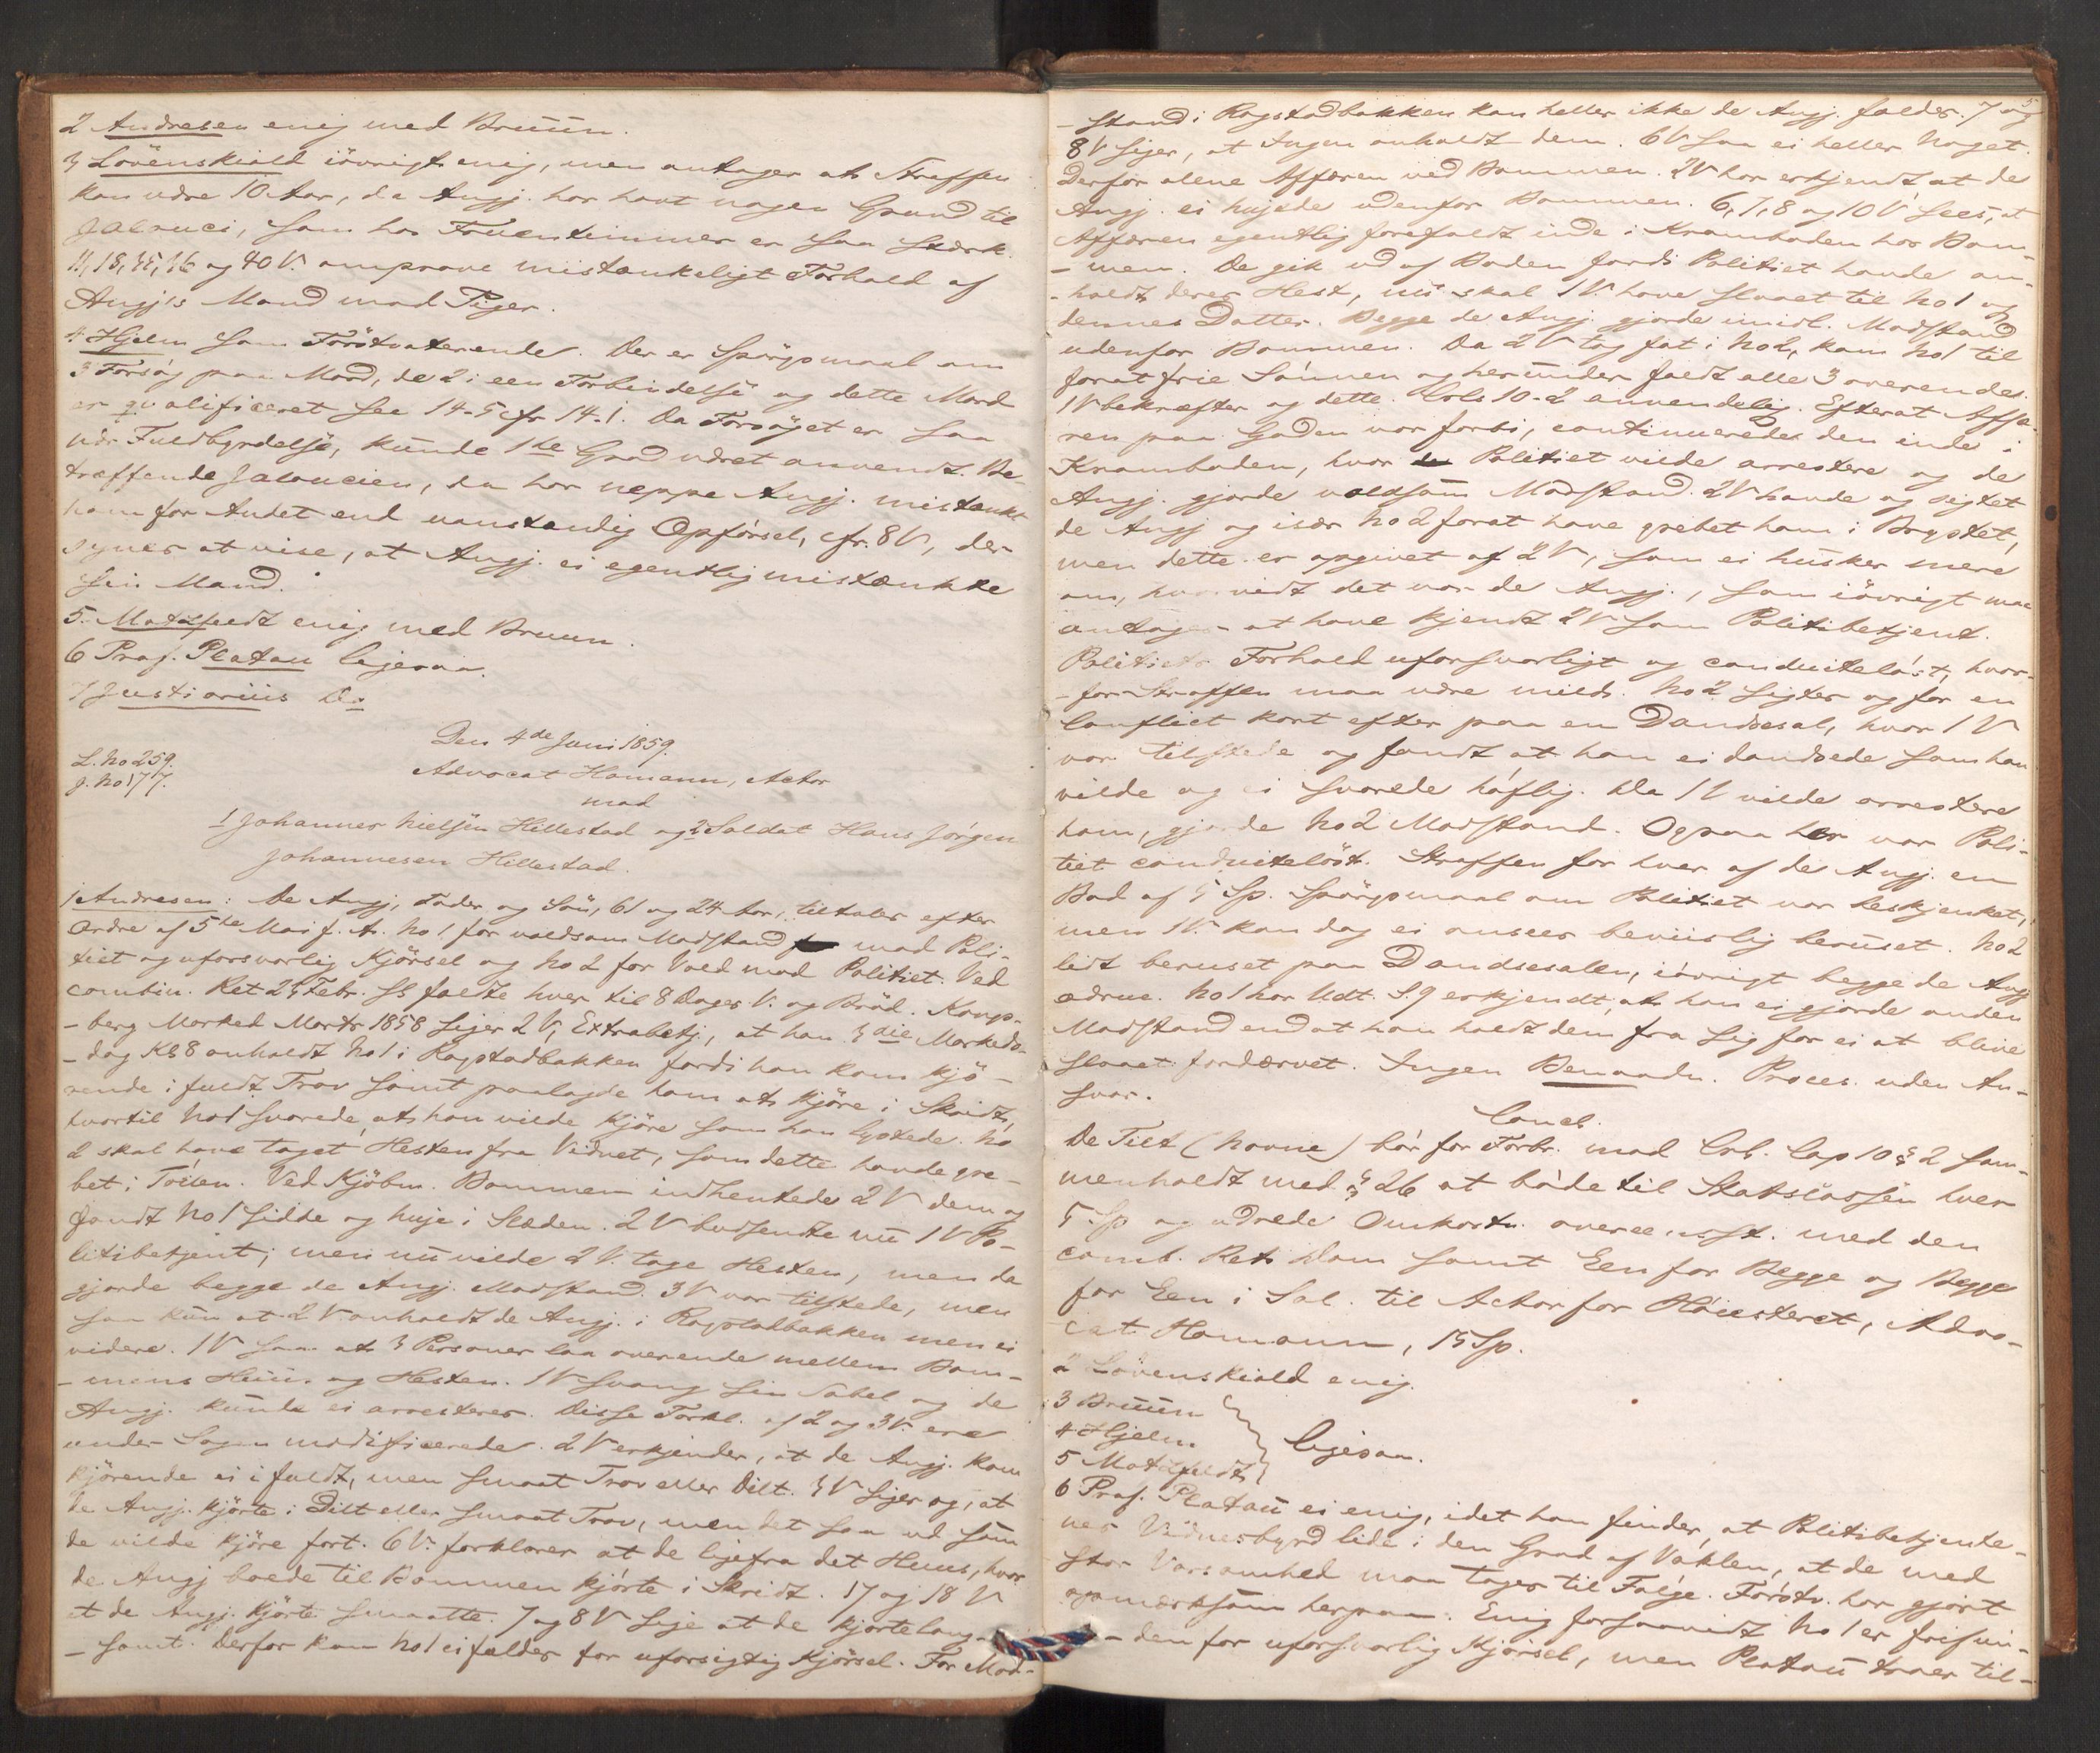 2 Andresen enig med Bruun.
3 Lövenskiold iövrigt enig, men antager at Straffen
kan være 10 Aar, da Angj. har havt nogen Grund til
Jalouci, som hos Fruentimmer er saa stærk.
11, 18, 35, 36 og 40 V. omprove mistænkeligt Forhold af
Angjs Mand mod Piger.
4 Hjelm som Förstvoterende. Der er Spörgsmaal om
3 Forsög paa Mord, de 2 i een Forbindelse og dette Mord
er qvalificeret see 14-5 cfr 14-1. Da Forsöget er saa
nær Fuldbyrdelse, kunde 1ste Grad været anvendt. Be-
træffende Jaloucien, da har neppe Angj. mistænkt
ham for Andet end uanstændig Opförsel, cfr. 8 V, der
synes at vise, at Angj. ei egentlig mistænkte
sin Mand.
5. Motzfeldt enig med Bruun.
6 Prof. Platou ligesaa.
7 Justiarius Do
Den 4de Juni 1859.
L. No 259.
J. No 177.
Advocat Homann, Actor
mod
1 Johannes Nielsen Hillestad og 2 Soldat Hans Jörgen
Johannesen Hillestad.
1 Andresen: De Angj, Fader og Sön, 61 og 24 Aar, tiltales efter
Ordre af 5te Mai f. A. No 1 for voldsom Modstand mod Poli-
tiet og uforsvarlig Kjörsel og No 2 for Vold mod Politiet. Ved
combin. Ret 25 Febr. ss fældte hver til 8 Dages V. og Bröd. Kongs-
-berg Marked Marts 1858 siger 2 V, Extrabetj., at han 3die Markeds-
-dag Kl 8 anholdt No 1 i Rogstadbakken fordi han kom kjö-
rende i fuldt Trav samt paalagde ham at kjöre i Skridt,
hvortil No 1 svarede at han vilde kjöre som han lystede. No
2 skal have taget Hesten fra Vidnet, som dette havde gre-
bet i Töilen. Ved Kjöbm. Bommen indhentede 2 V dem og
fandt No 1 sidde og huje i Slæden. 2 V budsendte nu 1 V Po-
litibetjent; men nu vilde 2 V. tage Hesten, men da
gjorde begge de Angj. Modstand. 3 V var tilstede, men
saa kun at 2 V anholdt de Angj. i Rogstadbakken men ei
videre. 1 V saa at 3 Personer laa overende mellem Bom-
-mens Huus og Hesten. 1 V svang sin Sabel og de
Angj. kunde ei arresteres. Disse Forkl. af 2 og 3 V. ere
under Sagen modificerede. 2 V erkjender, at de Angj. kom
kjörende ei i fuldt, men smaat Trav eller Dilt. 3 V siger og, at
de Angj. kjörte i Dilt eller smaat Trav, men det saa ud som
de vilde kjöre fort. 6 V. forklarer at de ligefra det Huus, hvor
de Angj boede til Bommen kjörte i Skridt. 17 og 18 V
at de Angj. kjörte smaatte. 7 og 8 V sige at de kjörte lang-
-somt. Derfor kan No 1 ei fældes for uforsigtig Kjörsel. For Mod-
5
-stand i Rogstadbakken kan heller ikke de Angj. fældes. 7 og
8 V siger, at Ingen anholdt dem. 6 V saa ei heller Noget.
Derfor alene Affæren ved Bommen. 2 V har erkjendt at de
Angj. ei hujede udenfor Bommen. 6, 7, 8 og 10 V sees, at
Affæren egentlig forefaldt inde i Kramboden hos Bom-
-men. De gik ud af Boden fordi Politiet havde an-
-holdt deres Hest, nu skal 1 V. have slaaet til No 1 og
dennes Datter. Begge de Angj. gjorde imidl. Modstand
udenfor Bommen. Da 2 V tog fat i No 2, kom No 1 til
forat frie Sönnen og herunder faldt alle 3 overendes.
1 V bekræfter og dette. Crl. 10-2 anvendelig. Efterat Affæ-
ren paa Gaden var forbi, continueredes den inde i
Kramboden, hvor Politiet vilde arrestere og de
Angj. gjorde voldsom Modstand. 2 V havde og sigtet
de Angj og især No 2 forat have grebet ham i Brystet,
men dette er opgivet af 2 V, som ei husker mere
om, hvorvidt det var de Angj., som iövrigt maa
antages at have kjendt 2 V som Politibetjent.
Politiets Forhold uforsvarligt og conduitelöst, hvor-
-for Straffen maa være mild. No 2 sigtes og for en
Conflict kort efter paa en Dandsesal, hvor 1 V
var tilstede og fandt at han ei dandsede som han
vilde og ei svarede höflig. Da 1 V vilde arrestere
ham, gjorde No 2 Modstand. Ogsaa her var Poli-
tiet conduitelöst. Straffen for hver af de Angj. en
Bod af 5 Sp. Spörgsmaal om Politiet var beskjenket,
men 1 V. kan dog ei ansees beviislig beruset. No 2
lidt beruset paa Dandsesalen, iövrigt begge de Angj
ædrue. No 1 har Udt. S. 9 erkjendt, at han ei gjorde anden
Modstand end at han holdt dem fra sig for ei at blive
slaaet fordærvet. Ingen Benaadn. Proces. uden An-
svar.
Concl.
De Tilt (Novne) bör for Forbr. mod Crl. Cap 10 § 2 sam-
menholdt med § 26 at böde til Statscassen hver
5 Sp og udrede Omkostn. overeensst. med den
comb. Rets Dom samt Een for Begge og Begge
for Een i Sal. til Actor for Höiesteret, Advo-
cat Homann, 15 Sp.
2 Lövenskiold enig.
3 Bruun
4 Hjelm
5 Motzfeldt
ligesaa.
6 Prof. Platou ei enig, idet han finder, at Politibetjente-
nes Vidnesbyrd lide i den Grad af Vaklen, at de med
stor Varsomhed maa tages til Fölge. Förstv. har gjort
opmærksom herpaa. Enig forsaavidt No 1 er frifun-
-den for uforsvarlig Kjörsel, men Platou troer til-